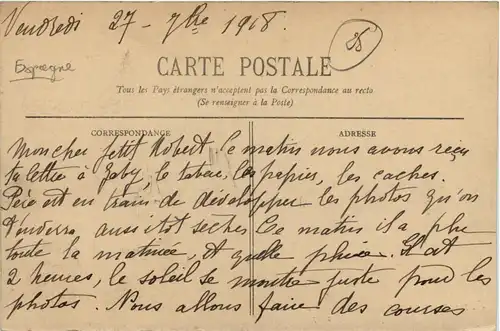 Vendredi 27 - 7bre 1918.
Espagne
CARTE POSTALE
Tous les Pays étrangers n'acceptent pas la Correspondance au recto
(Se renseigner à la Poste)
CORRESPONDANCE
ADRESSE
Mon cher petit Robert. Ce matin nous avons reçu
ta lettre à Gaby, le tabac, les papiers, les caches.
Père est en train de développer les photos qu'on
t'enverra aussitot seches Ce matin il a plu
toute la matinée, et quelle pluie. Il est
2 heures, le soleil se montre juste pour les
photos. Nous allons faire des courses